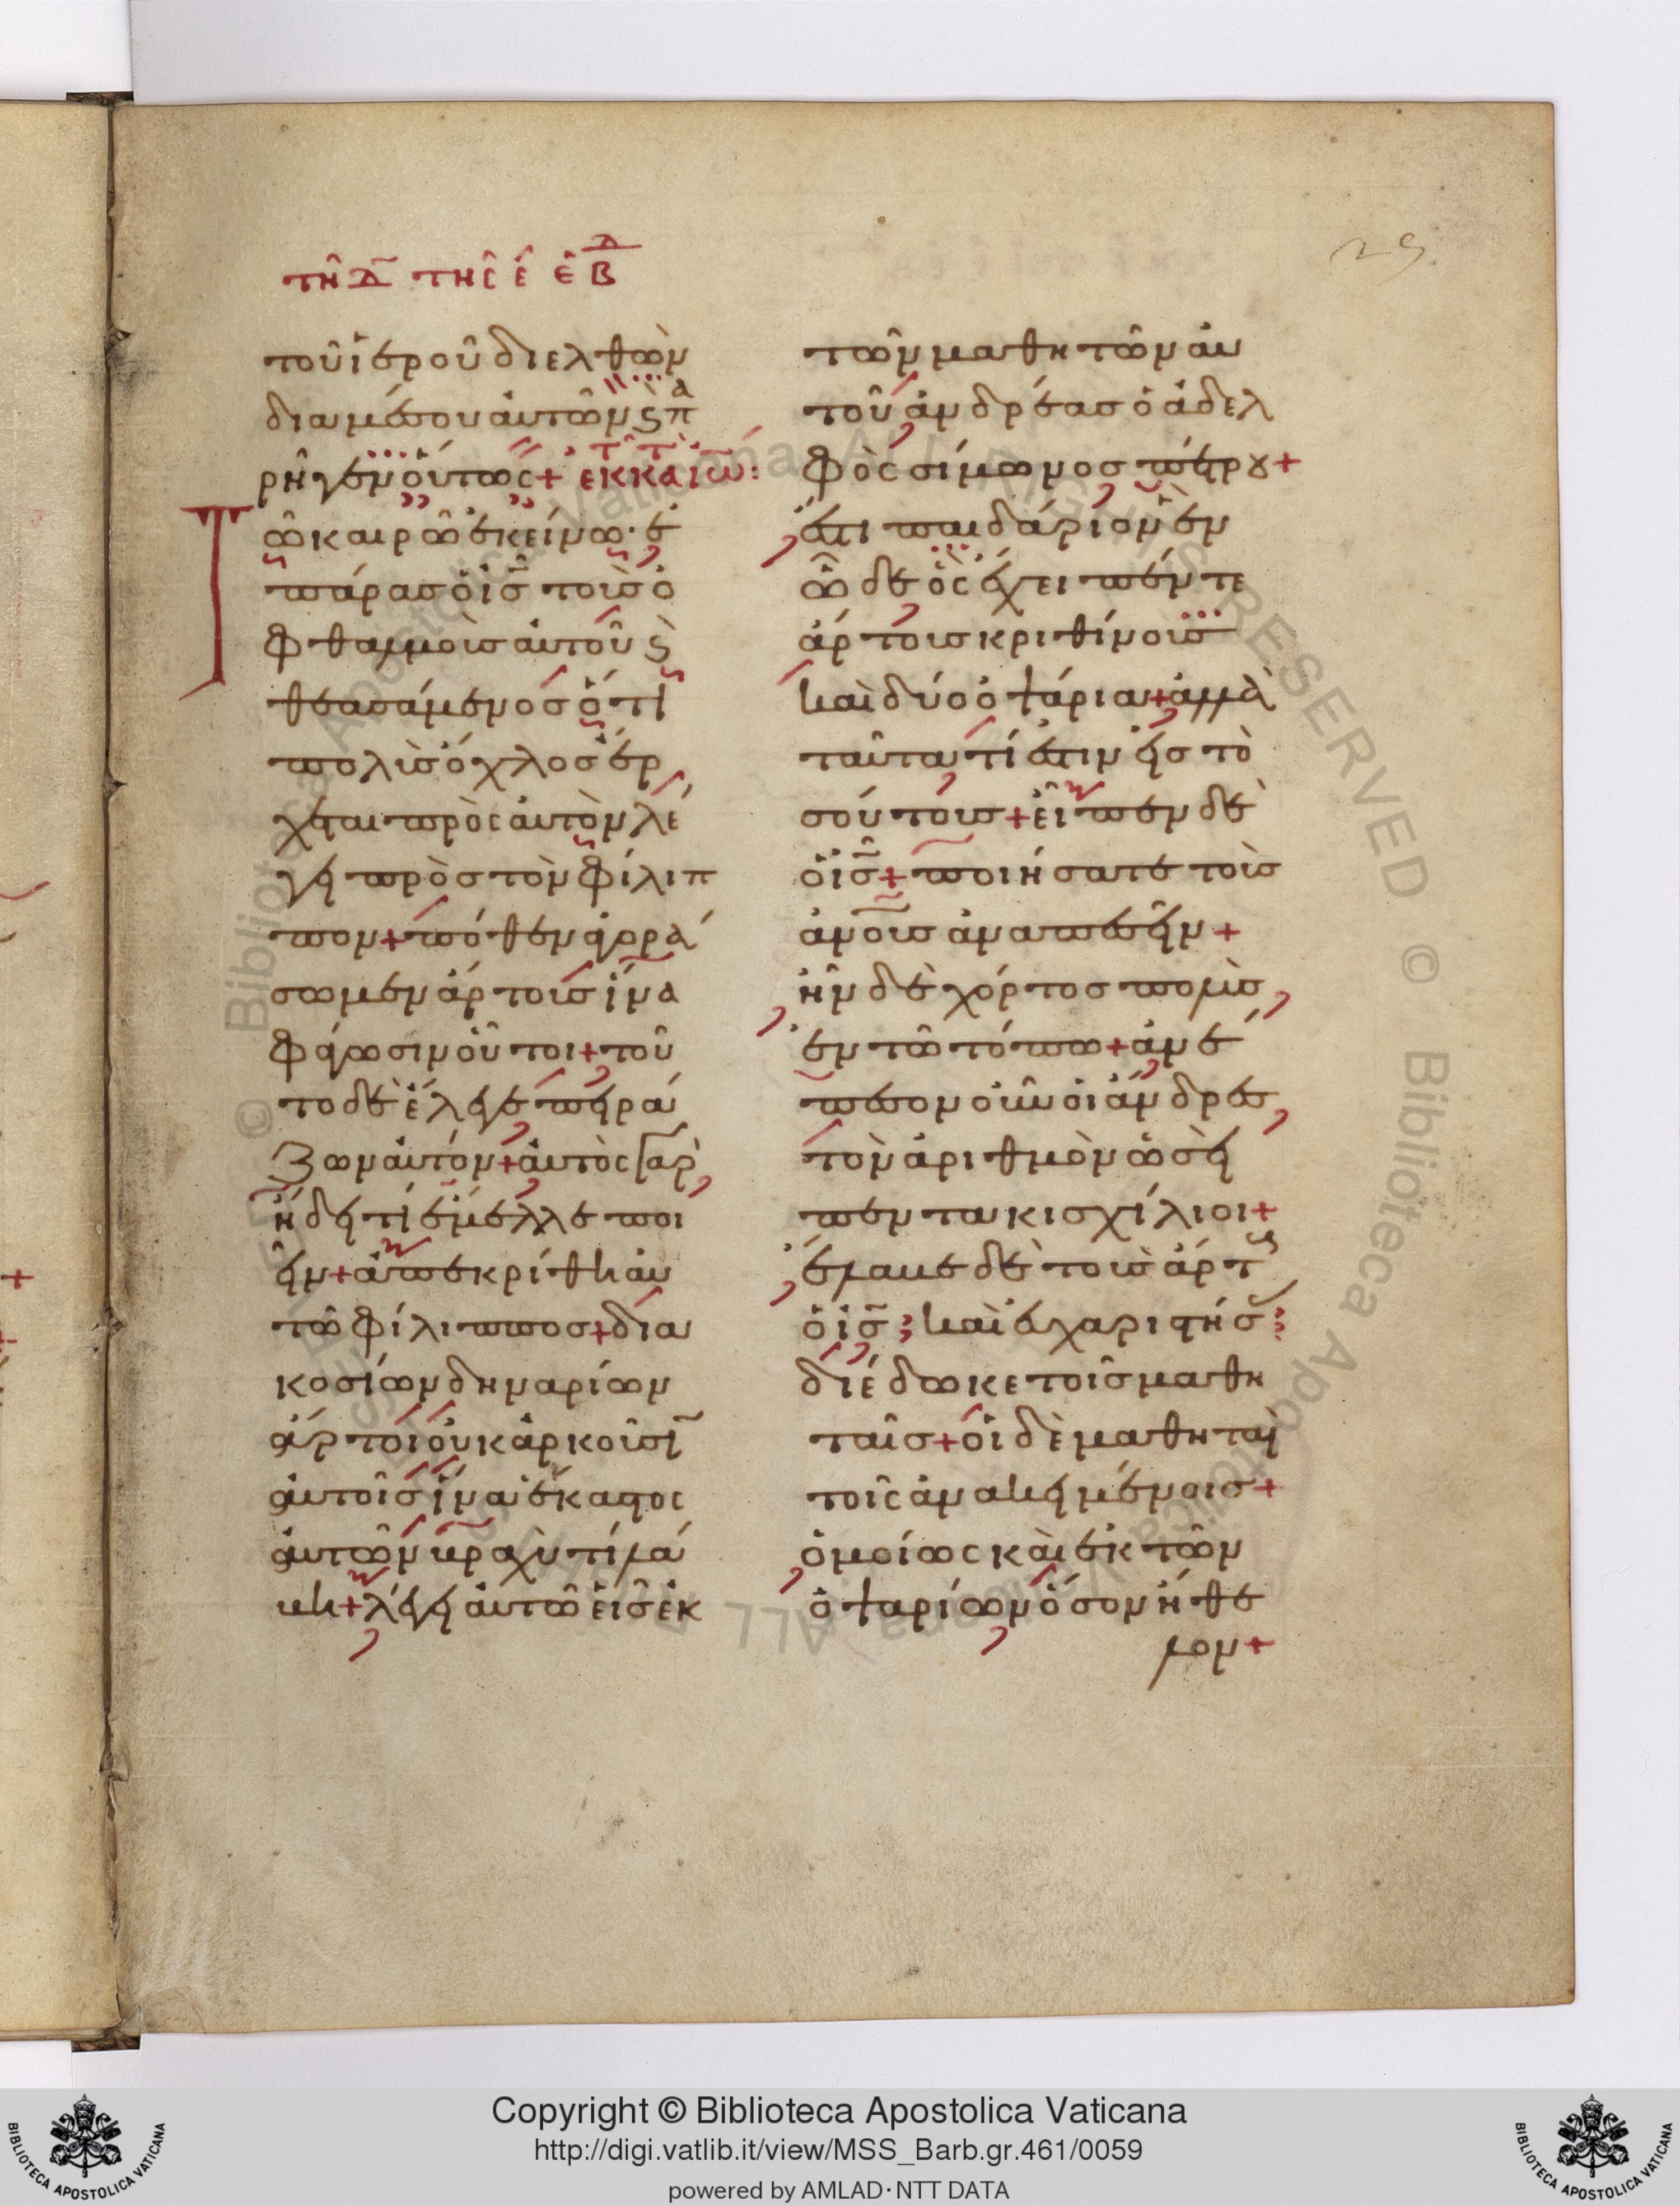 τῆ Δ τῆς ε ἑβδ
29
τοῦ ἱεροῦ διελθὼν
διαμέσου αὐτῶν ϛ πα
ρῆγεν οὕτως + ἐκ κατ ἰω:
Τ
ῶ καιρῶ ἐκείνω· ἐ
πάρας ὁ ις τοὺς ὀ
φθαλμοὺς αὐτοῦ ϛ
θεασάμενος ὅτι
πολὺς ὄχλος ἔρ
χεται πρὸς αὐτὸν λέ
γει πρὸς τὸν φίλιπ
πον + πόθεν ἀγορά
σωμεν ἄρτους ἵνα
φάγωσιν οὗτοι + τοῦ
το δὲ ἔλεγε πειρά
ζων αὐτόν + αὐτὸς γὰρ
ἤδει τί ἔμελλε ποι
εῖν + ἀπεκρίθη αὐ
τῶ φίλιππος + δια
κοσίων δηναρίων
ἄρτοι οὐκ ἀρκοῦσι
αὐτοῖς ἵνα ἕκαστος
αὐτῶν βραχύ τι λά
βη + λέγει αὐτῶ εἷς ἐκ
τῶν μαθητῶν αὐ
τοῦ ἀνδρέας ὁ ἀδελ
φὸς σίμωνος πέτρου +
ἔστι παιδάριον ἓν
ὧδε ὃς ἔχει πέντε
ἄρτους κριθίνους
καὶ δύο ὀψάρια + ἀλλὰ
ταῦτα τί ἐστιν εἰς το
σούτους + εἶπεν δὲ
ὁ ις + ποιήσατε τοὺς
ανους ἀναπεσεῖν +
ἦν δὲ χόρτος πολὺς
ἐν τῶ τόπω + ἀνέ
πεσον οὖν οἱ ἄνδρες
τὸν ἀριθμὸν ὡσεὶ
πεντακισχίλιοι +
ἔλαβε δὲ τοὺς ἄρτους
ὁ ις ; καὶ εὐχαριστήσας :
διέδωκε τοῖς μαθη
ταῖς + οἱ δὲ μαθηταὶ
τοῖς ἀνακειμένοις +
ὁμοίως καὶ ἐκ τῶν
ὀψαρίων ὅσον ἤθε
λον +
© Biblioteca Apostolica Vaticana ALL RIGHTS RESERVED © Biblioteca Apostolica Vaticana ALL RIGHTS RESERVED
Copyright © Biblioteca Apostolica Vaticana
http://digi.vatlib.it/view/MSS_Barb.gr.461/0059
powered by AMLAD·NTT DATA
BIBLIOTECA APOSTOLICA VATICANA
BIBLIOTECA APOSTOLICA VATICANA